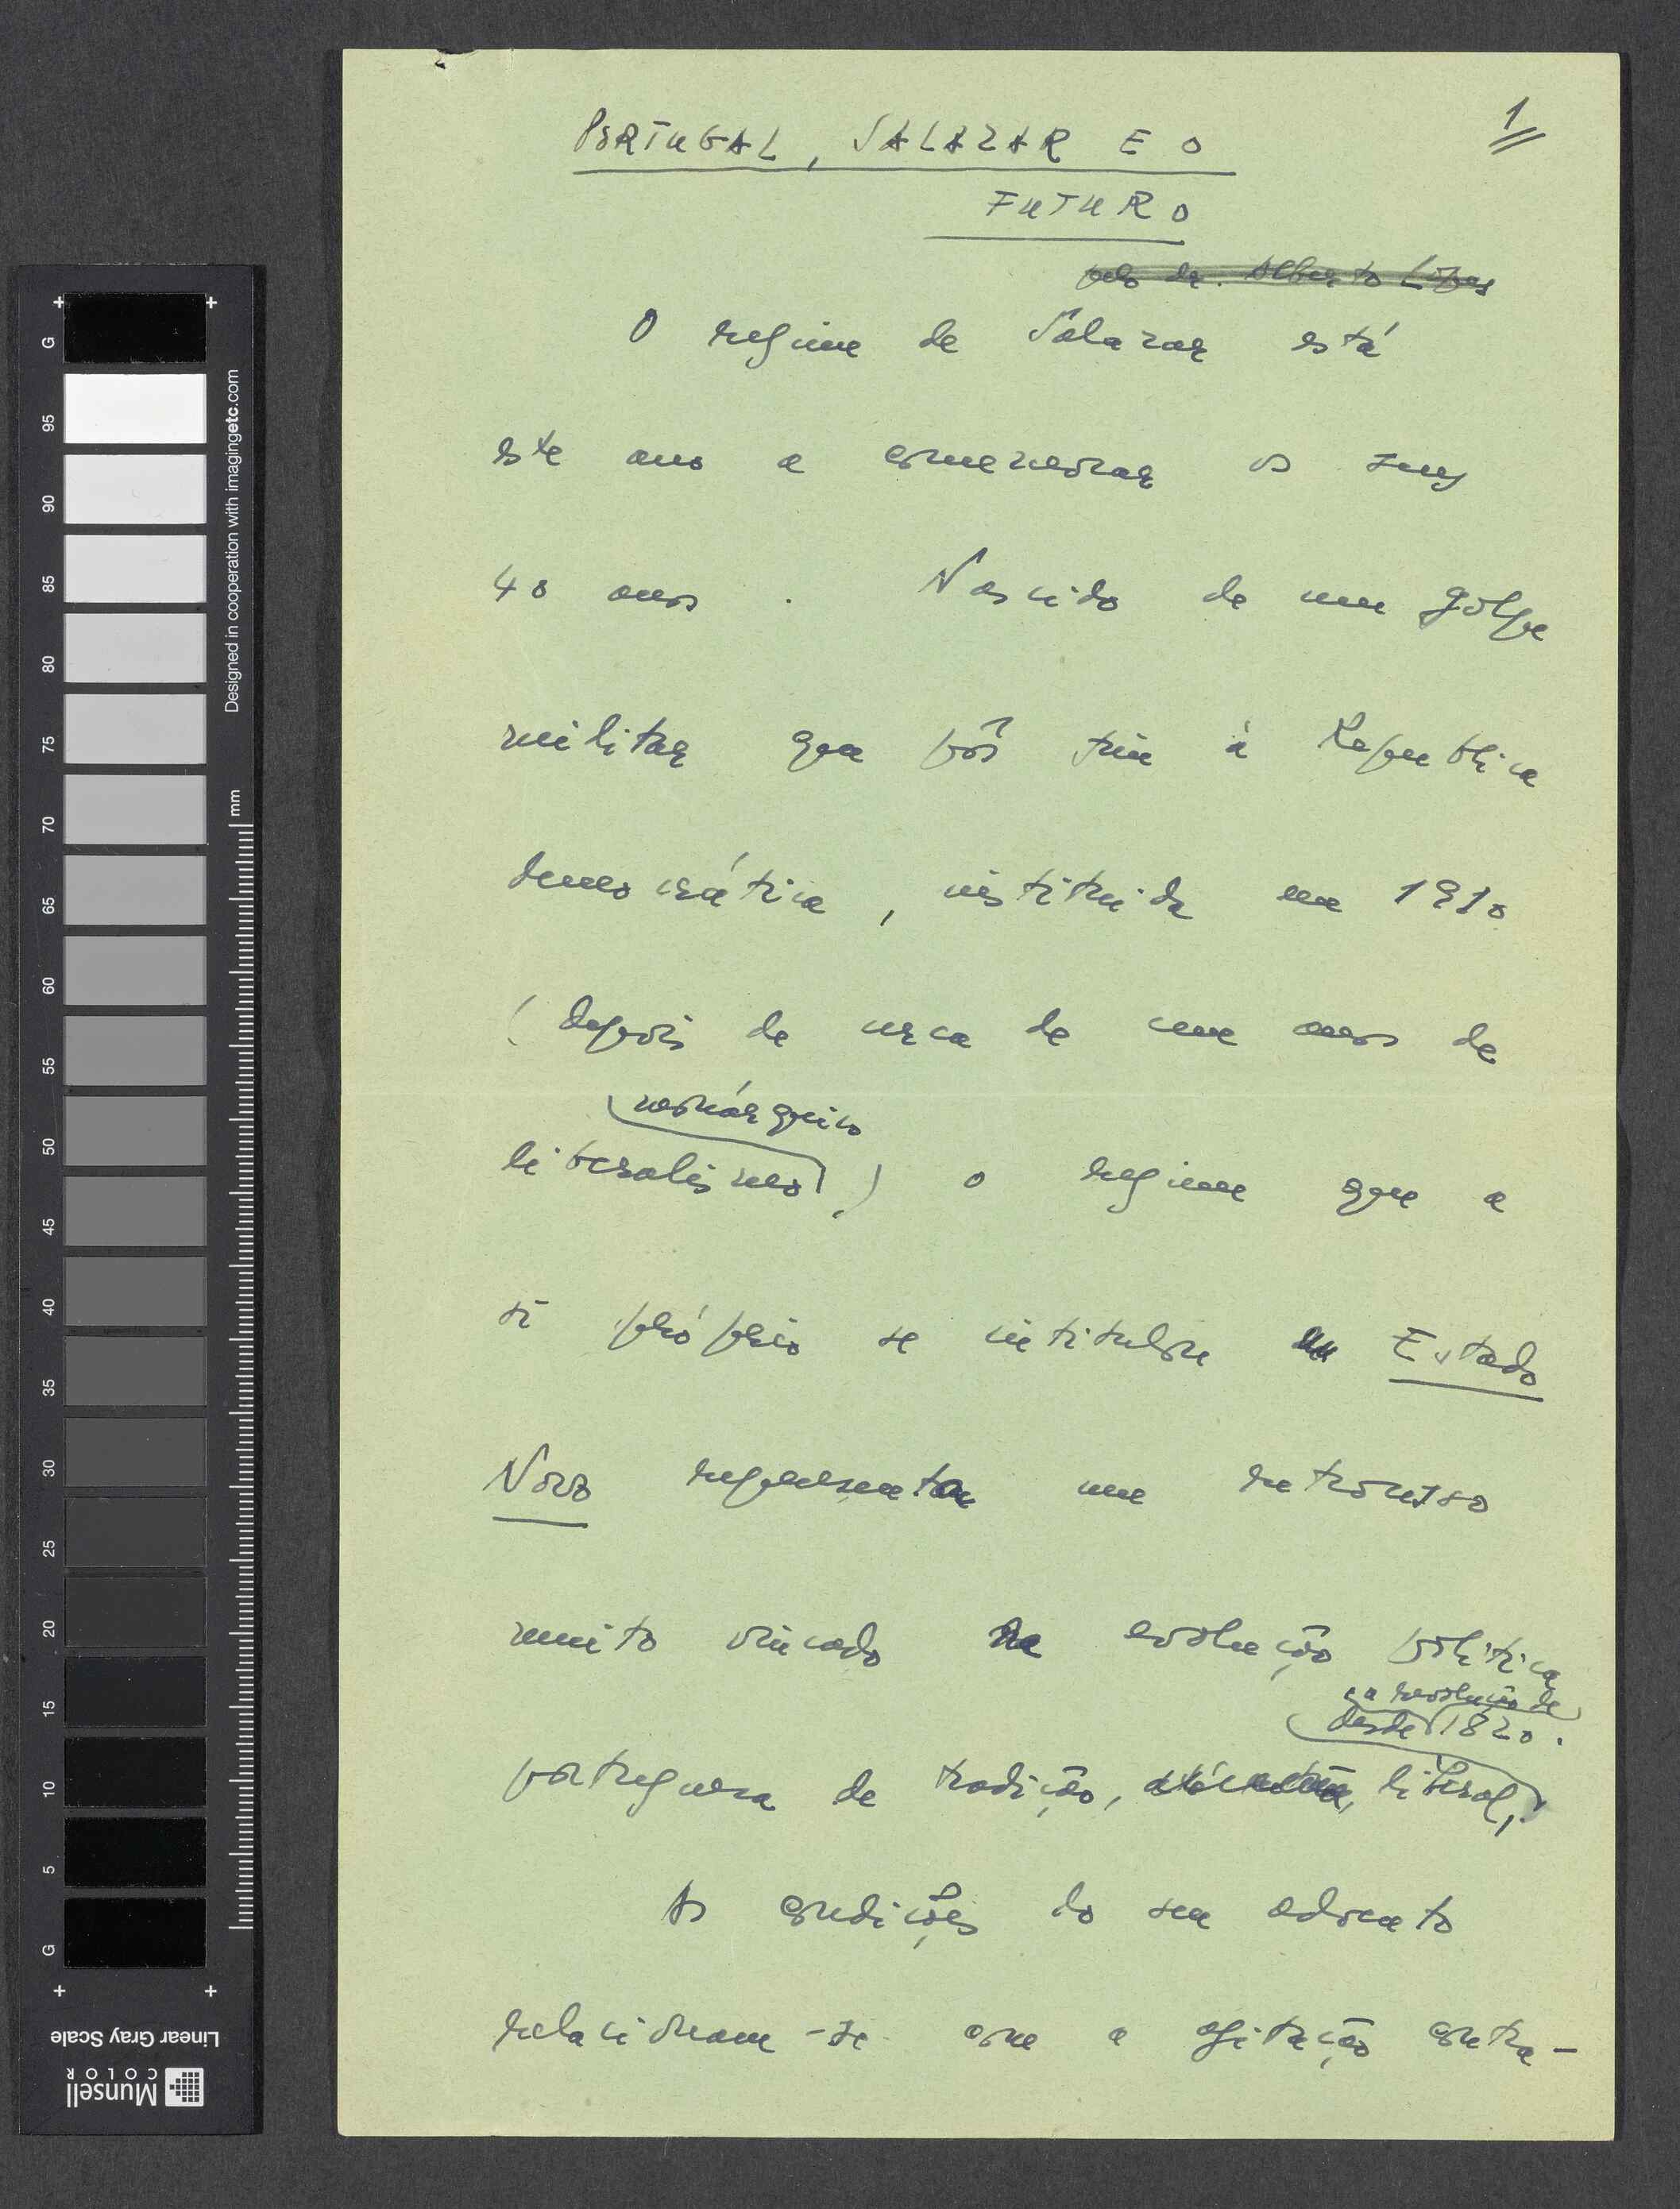 PORTUGAL, SALAZAR E O
1
FUTURO
pelo dr. Alberto Lopes
O regime de Salazar está
este ano a comemorar os seus
40 anos. Nascido de um golpe
militar que pôs fim à Republica
democrática, instituida em 1910
(depois de cerca de cem anos de
monárquico
liberalismo), o regime que a
si próprio se intitulou Estado
Novo representa um retrocesso
muito vincado na evolução politica
a revolução de
desde 1820.
portuguesa de tradição, liberal,
As condições do seu advento
relacionam-se com a agitação contra-
G
95
90
85
80
75
70
65
60
55
50
45
40
35
30
25
20
15
10
5
G
mm
Designed in cooperation with imagingetc.com
Linear Gray Scale
Munsell
COLOR